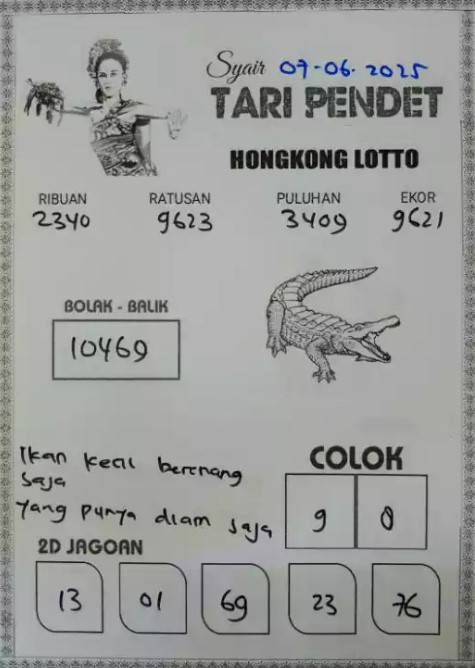 Syair 07-06-2025
TARI PENDET
HONGKONG LOTTO
RIBUAN RATUSAN PULUHAN EKOR
2340 9623 3409 9621
BOLAK - BALIK
10469
Ikan kecil berenang
saja
yang punya diam saja
COLOK
9 0
2D JAGOAN
13 01 69 23 76